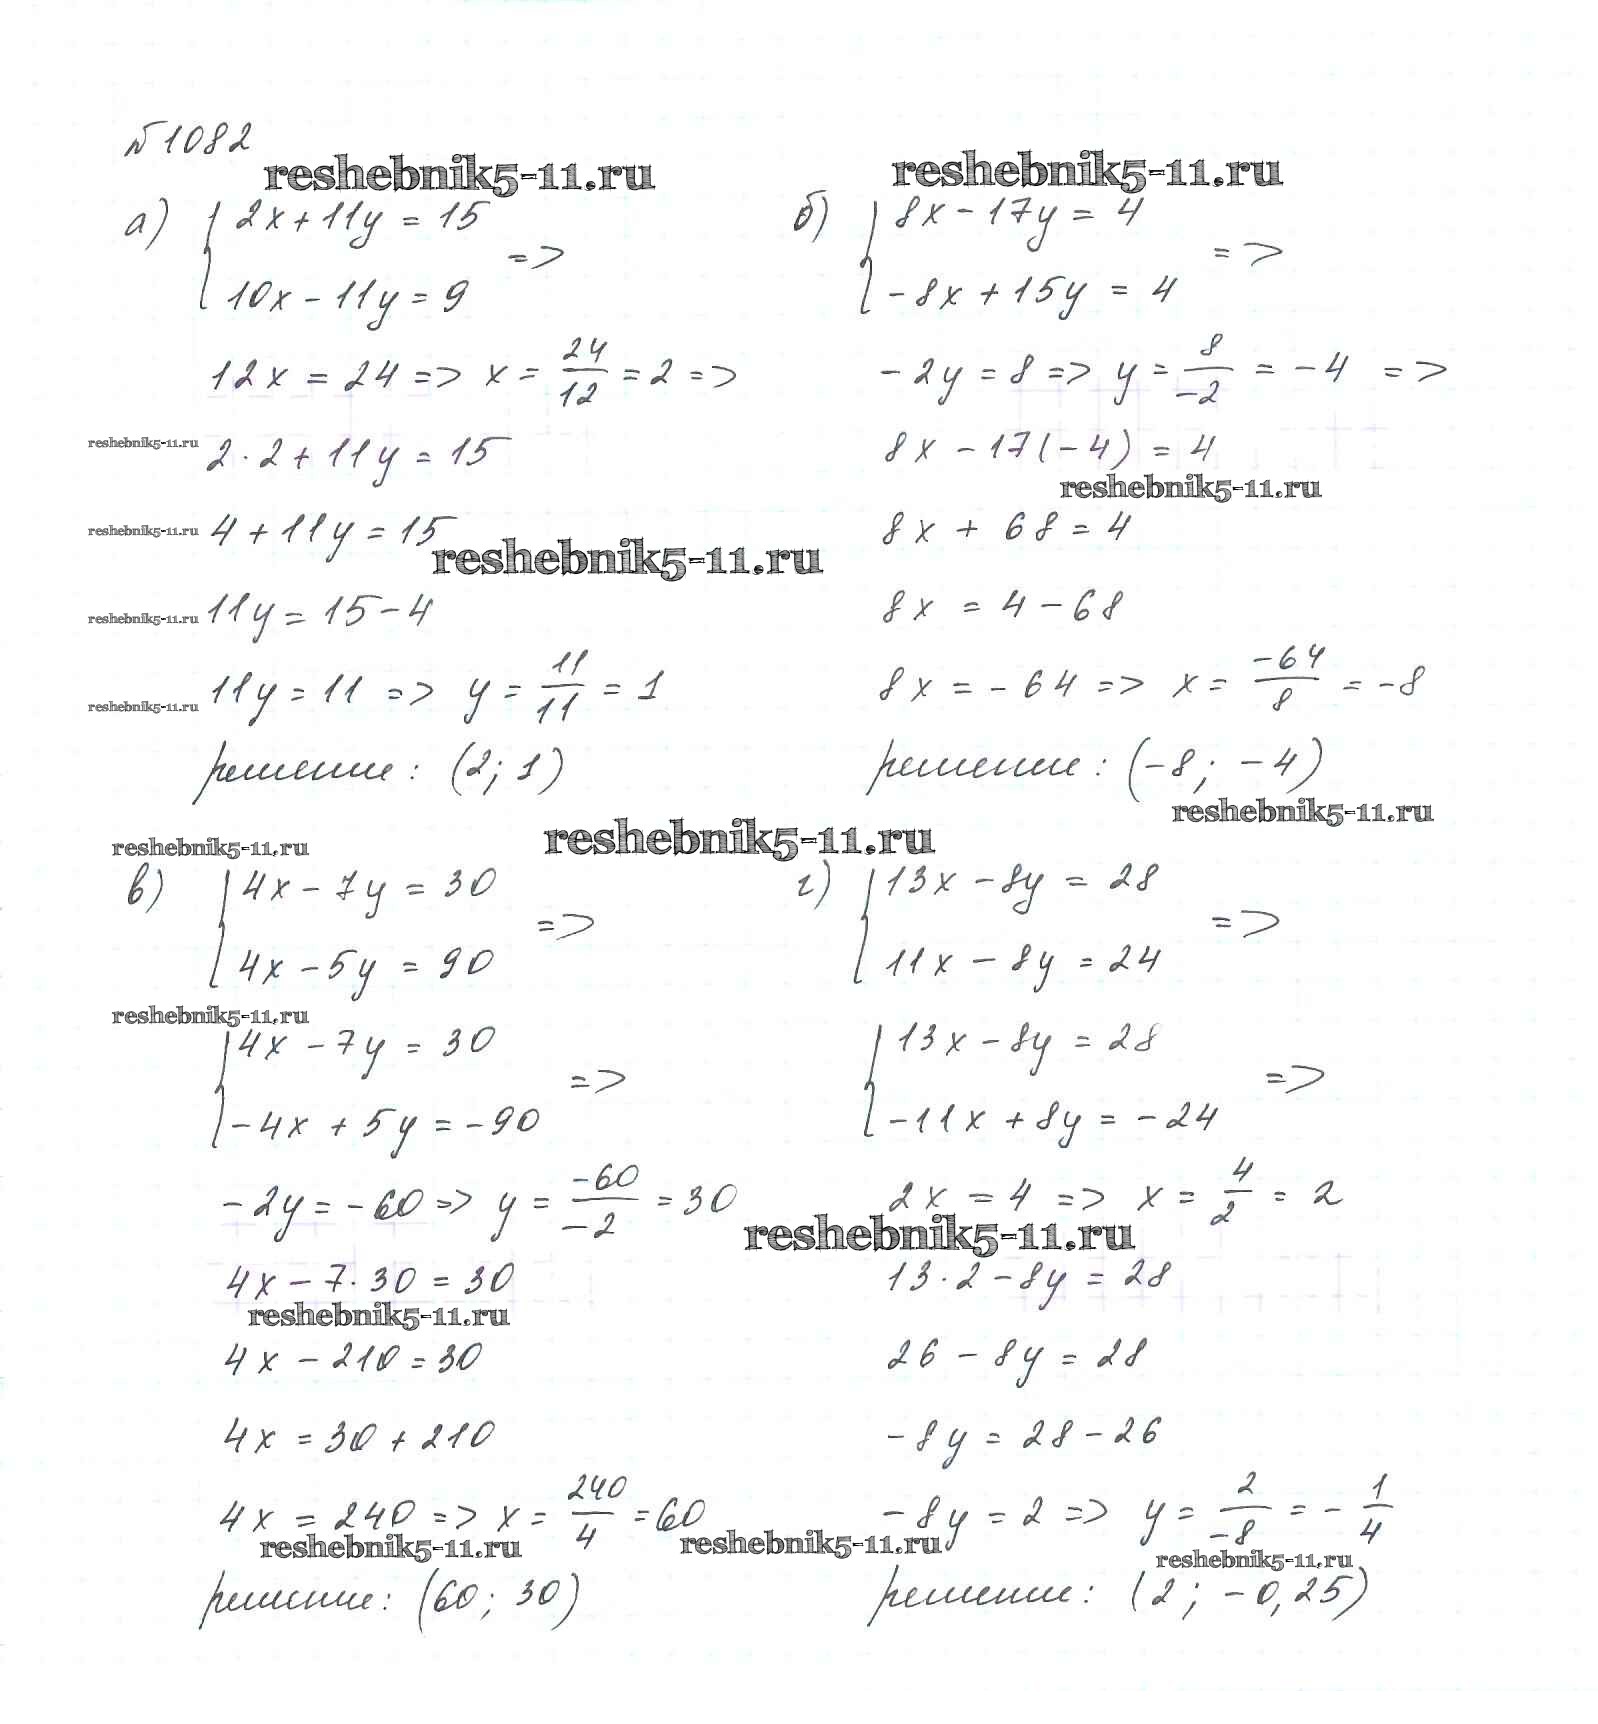 №1082
reshebnik5-11.ru
reshebnik5-11.ru
а) { 2x + 11y = 15
10x - 11y = 9 =>
12x = 24 => x = 24/12 = 2 =>
reshebnik5-11.ru
2·2 + 11y = 15
reshebnik5-11.ru
4 + 11y = 15
reshebnik5-11.ru
reshebnik5-11.ru
11y = 15 - 4
reshebnik5-11.ru
11y = 11 => y = 11/11 = 1
решение: (2; 1)
б) { 8x - 17y = 4
-8x + 15y = 4 =>
-2y = 8 => y = 8/-2 = -4 =>
8x - 17(-4) = 4
reshebnik5-11.ru
8x + 68 = 4
8x = 4 - 68
8x = -64 => x = -64/8 = -8
решение: (-8; -4)
reshebnik5-11.ru
reshebnik5-11.ru
reshebnik5-11.ru
в) { 4x - 7y = 30
4x - 5y = 90 =>
reshebnik5-11.ru
{ 4x - 7y = 30
-4x + 5y = -90 =>
-2y = -60 => y = -60/-2 = 30
4x - 7·30 = 30
reshebnik5-11.ru
4x - 210 = 30
4x = 30 + 210
4x = 240 => x = 240/4 = 60
reshebnik5-11.ru
решение: (60; 30)
г) { 13x - 8y = 28
11x - 8y = 24 =>
{ 13x - 8y = 28
-11x + 8y = -24 =>
2x = 4 => x = 4/2 = 2
reshebnik5-11.ru
13·2 - 8y = 28
26 - 8y = 28
-8y = 28 - 26
-8y = 2 => y = 2/-8 = - 1/4
reshebnik5-11.ru
reshebnik5-11.ru
решение: (2; -0,25)